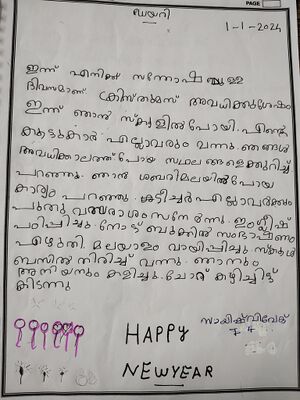 PAGE
ഡയറി
1-1-2024
ഇന്ന് എനിക്ക് സന്തോഷമുള്ള
ദിവസമാണ്. ക്രിസ്തുമസ് അവധിക്കുശേഷം
ഇന്ന് ഞാൻ സ്കൂളിൽ പോയി. എന്റെ
കൂട്ടുകാർ എല്ലാവരും വന്നു. ഞങ്ങൾ
അവധിക്കാലത്ത് പോയ സ്ഥലങ്ങളെക്കുറിച്ച്
പറഞ്ഞു. ഞാൻ ശബരിമലയിൽ പോയ
കാര്യം പറഞ്ഞു. ടീച്ചർ എല്ലാവർക്കും
പുതുവത്സരാശംസ നേർന്നു. ഇംഗ്ലീഷ്
പഠിപ്പിച്ചു. നോട്ട് ബുക്കിൽ സംഭാഷണം
എഴുതി. മലയാളം വായിപ്പിച്ചു. സ്കൂൾ
ബസിൽ തിരിച്ച് വന്നു. ഞാനും
അനിയനും കളിച്ചു. ചോറ് കഴിച്ചിട്ട്
കിടന്നു
HAPPY
NEWYEAR